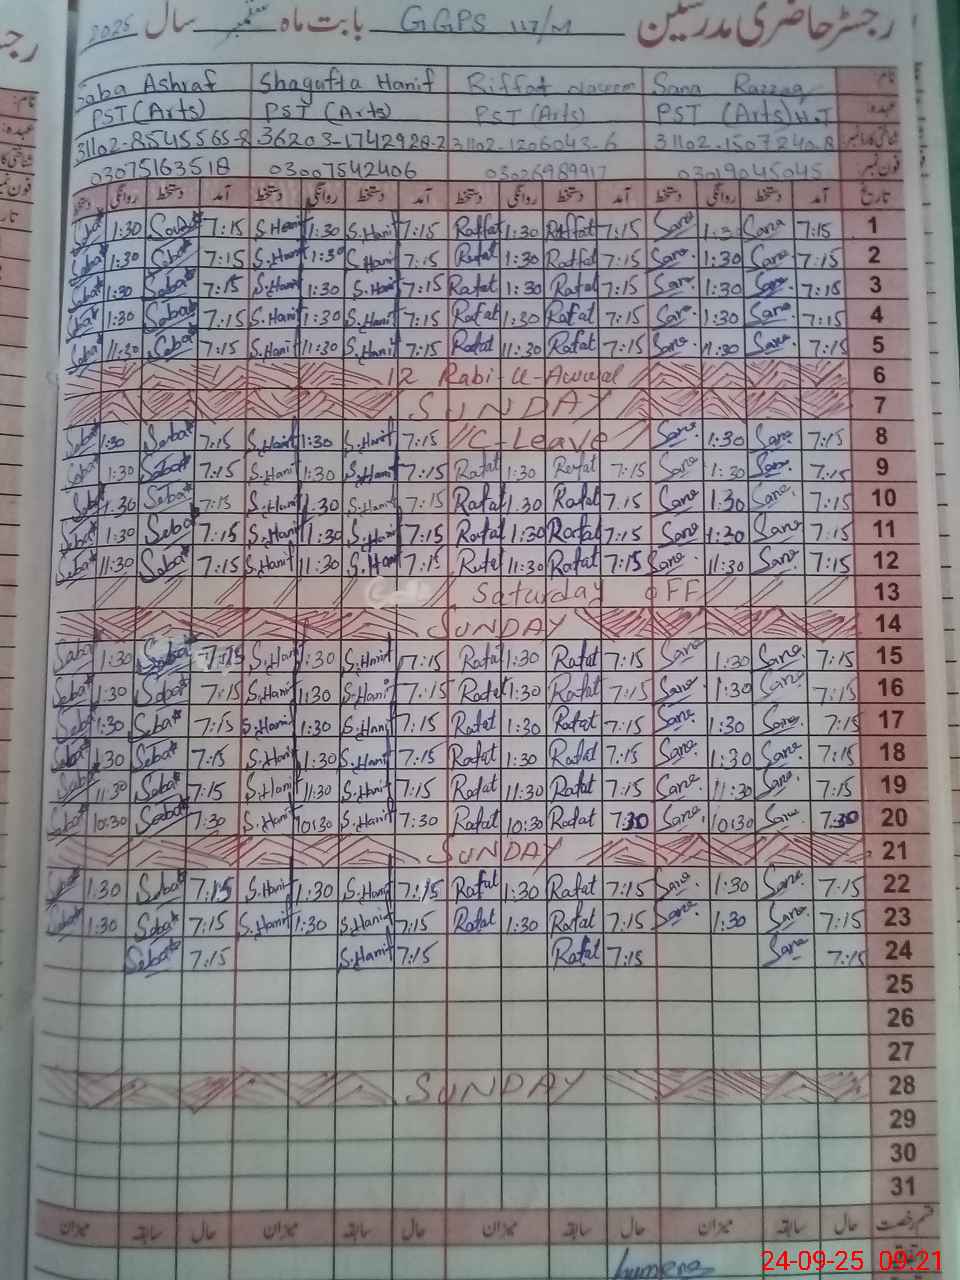 رجسٹر حاضری مدرسین GGPS 117/M بابت ماہ ستمبر سال 2025
Saba Ashraf Shagufta Hanif Riffat Naeem Sana Razzaq نام:
PST (Arts) PST (Arts) PST (Arts) PST (Arts) H.T عہدہ:
31102-8545565-8 36203-1742928-2 31102-1206043-6 31102-1507240-8 شناختی کارڈ نمبر
03075163518 03007542406 03026989917 03019045045 فون نمبر
تاریخ آمد دستخط روانگی دستخط آمد دستخط روانگی دستخط آمد دستخط روانگی دستخط آمد دستخط روانگی دستخط
Saba 1:30 Saba 7:15 S.Hanif 1:30 S.Hanif 7:15 Raffat 1:30 Raffat 7:15 Sana 1:30 Sana 7:15 1
Saba 1:30 Saba 7:15 S.Hanif 1:30 S.Hanif 7:15 Rafat 1:30 Raffat 7:15 Sana 1:30 Sana 7:15 2
Saba 1:30 Saba 7:15 S.Hanif 1:30 S.Hanif 7:15 Rafat 1:30 Rafat 7:15 Sana 1:30 Sana 7:15 3
Saba 1:30 Saba 7:15 S.Hanif 1:30 S.Hanif 7:15 Rafat 1:30 Rafat 7:15 Sana 1:30 Sana 7:15 4
Saba 11:30 Saba 7:15 S.Hanif 11:30 S.Hanif 7:15 Rafat 11:30 Rafat 7:15 Sana 11:30 Sana 7:15 5
12 Rabi-U-Awwal 6
SUNDAY 7
Saba 1:30 Saba 7:15 S.Hanif 1:30 S.Hanif 7:15 C-Leave Sana 1:30 Sana 7:15 8
Saba 1:30 Saba 7:15 S.Hanif 1:30 S.Hanif 7:15 Rafat 1:30 Rafat 7:15 Sana 1:30 Sana 7:15 9
Saba 1:30 Saba 7:15 S.Hanif 1:30 S.Hanif 7:15 Rafat 1:30 Rafat 7:15 Sana 1:30 Sana 7:15 10
Saba 1:30 Saba 7:15 S.Hanif 1:30 S.Hanif 7:15 Rafat 1:30 Rafat 7:15 Sana 1:30 Sana 7:15 11
Saba 11:30 Saba 7:15 S.Hanif 11:30 S.Hanif 7:15 Rafat 11:30 Rafat 7:15 Sana 11:30 Sana 7:15 12
Saturday OFF 13
SUNDAY 14
Saba 1:30 Saba 7:15 S.Hanif 1:30 S.Hanif 7:15 Rafat 1:30 Rafat 7:15 Sana 1:30 Sana 7:15 15
Saba 1:30 Saba 7:15 S.Hanif 1:30 S.Hanif 7:15 Rafat 1:30 Rafat 7:15 Sana 1:30 Sana 7:15 16
Saba 1:30 Saba 7:15 S.Hanif 1:30 S.Hanif 7:15 Rafat 1:30 Rafat 7:15 Sana 1:30 Sana 7:15 17
Saba 1:30 Saba 7:15 S.Hanif 1:30 S.Hanif 7:15 Rafat 1:30 Rafat 7:15 Sana 1:30 Sana 7:15 18
Saba 11:30 Saba 7:15 S.Hanif 11:30 S.Hanif 7:15 Rafat 11:30 Rafat 7:15 Sana 11:30 Sana 7:15 19
Saba 10:30 Saba 7:30 S.Hanif 10:30 S.Hanif 7:30 Rafat 10:30 Rafat 7:30 Sana 10:30 Sana 7:30 20
SUNDAY 21
Saba 1:30 Saba 7:15 S.Hanif 1:30 S.Hanif 7:15 Rafat 1:30 Rafat 7:15 Sana 1:30 Sana 7:15 22
Saba 1:30 Saba 7:15 S.Hanif 1:30 S.Hanif 7:15 Rafat 1:30 Rafat 7:15 Sana 1:30 Sana 7:15 23
Saba 7:15 S.Hanif 7:15 Rafat 7:15 Sana 7:15 24
25
26
27
SUNDAY 28
29
30
31
قسم رخصت حال سابقہ میزان حال سابقہ میزان حال سابقہ میزان حال سابقہ میزان
24-09-25 09:21